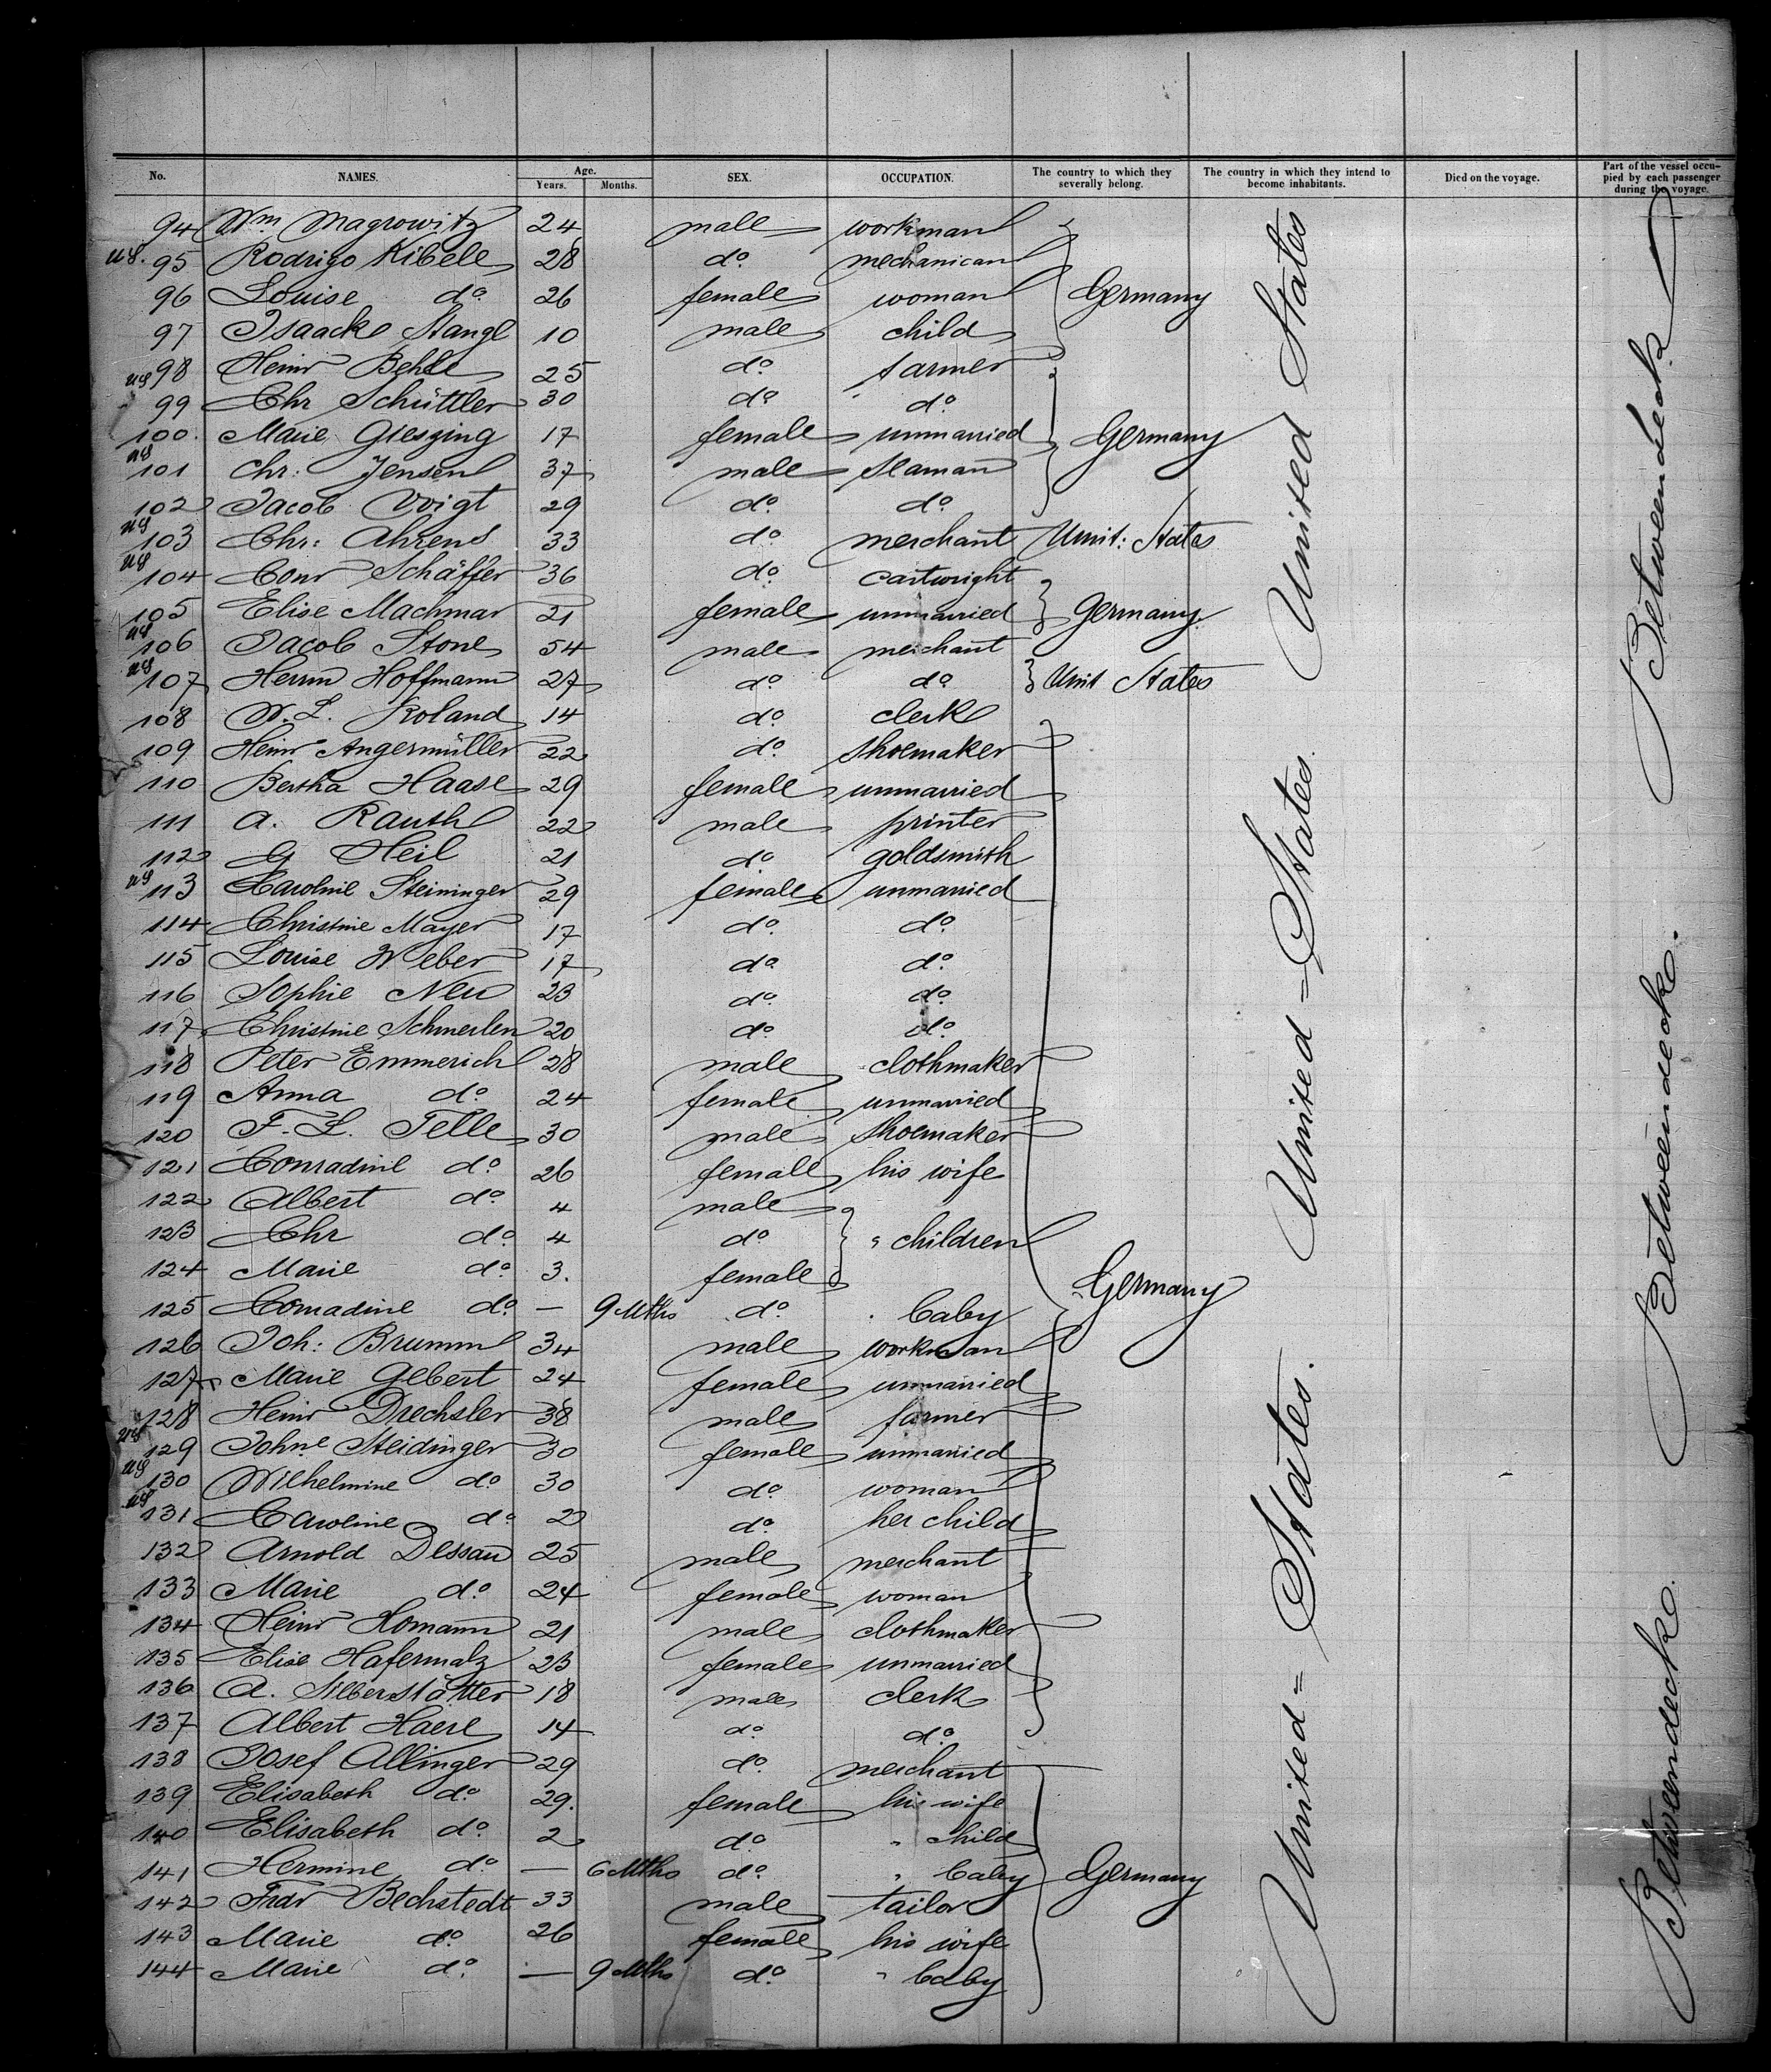 No. NAMES. Age. Years. Months. SEX. OCCUPATION. The country to which they severally belong. The country in which they intend to become inhabitants. Died on the voyage. Part of the vessel occupied by each passenger during the voyage.
94 Wm Magrowitz 24 male workman
U.S. 95 Rodrigo Kibele 28 do. mechanican
96 Louise do. 26 female woman Germany
97 Isaack Stangl 10 male child
US 98 Heinr Behle 25 do. farmer
99 Chr Schüttler 30 do. do.
100. Marie Gieszing 17 female unmarried Germany
US 101 Chr: Jensen 37 male seaman
102 Jacob Voigt 29 do. do.
US 103 Chr: Ahrens 33 do. merchant Unit: States
US 104 Conr Schäffer 36 do. cartwright
105 Elise Machmar 21 female unmarried Germany.
US 106 Jacob Stone 54 male merchant
US 107 Herrm Hoffmann 27 do. do. Unit States
108 W. L. Roland 14 do. clerk
109 Heinr Angermüller 22 do. shoemaker
110 Bertha Haase 29 female unmarried
111 A. Rauth 22 male printer
112 G Heil 21 do goldsmith
US 113 Caroline Steininger 29 female unmarried
114 Christine Mayer 17 do. do.
115 Louise Weber 17 do. do.
116 Sophie Neu 23 do. do.
117 Christine Schmerlen 20 do. do.
118 Peter Emmerich 28 male clothmaker
119 Anna do. 24 female unmarried
120 F. L. Telle 30 male shoemaker
121 Conradine do. 26 female his wife
122 Albert do. 4 male
123 Chr do. 4 do. " children
124 Marie do. 3. female
125 Conradine do. — 9 Mths do. " baby Germany
126 Joh: Brumm 34 male workman
127 Marie Gebert 24 female unmarried
128 Heinr Drechsler 38 male farmer
US 129 Johne Steidinger 30 female unmarried
US 130 Wilhelmine do. 30 do. woman
US 131 Caroline do. 2 do. her child
132 Arnold Dessau 25 male merchant
133 Marie do. 24 female woman
134 Heinr Homann 21 male clothmaker
135 Elise Hafermalz 23 female unmarried
136 A. Silberstätter 18 male clerk
137 Albert Haese 14 do. do.
138 Josef Allinger 29 do. merchant
139 Elisabeth do. 29. female his wife
140 Elisabeth do. 2 do. " child
141 Hermine do. — 6 Mths do. " baby Germany
142 Frdr Bechstedt 33 male tailor
143 Marie do. 26 female his wife
144 Marie do. — 9 Mths do. " baby
United States
United = States.
United = States.
Betweendeck
Betweendeck.
Betweendeck.